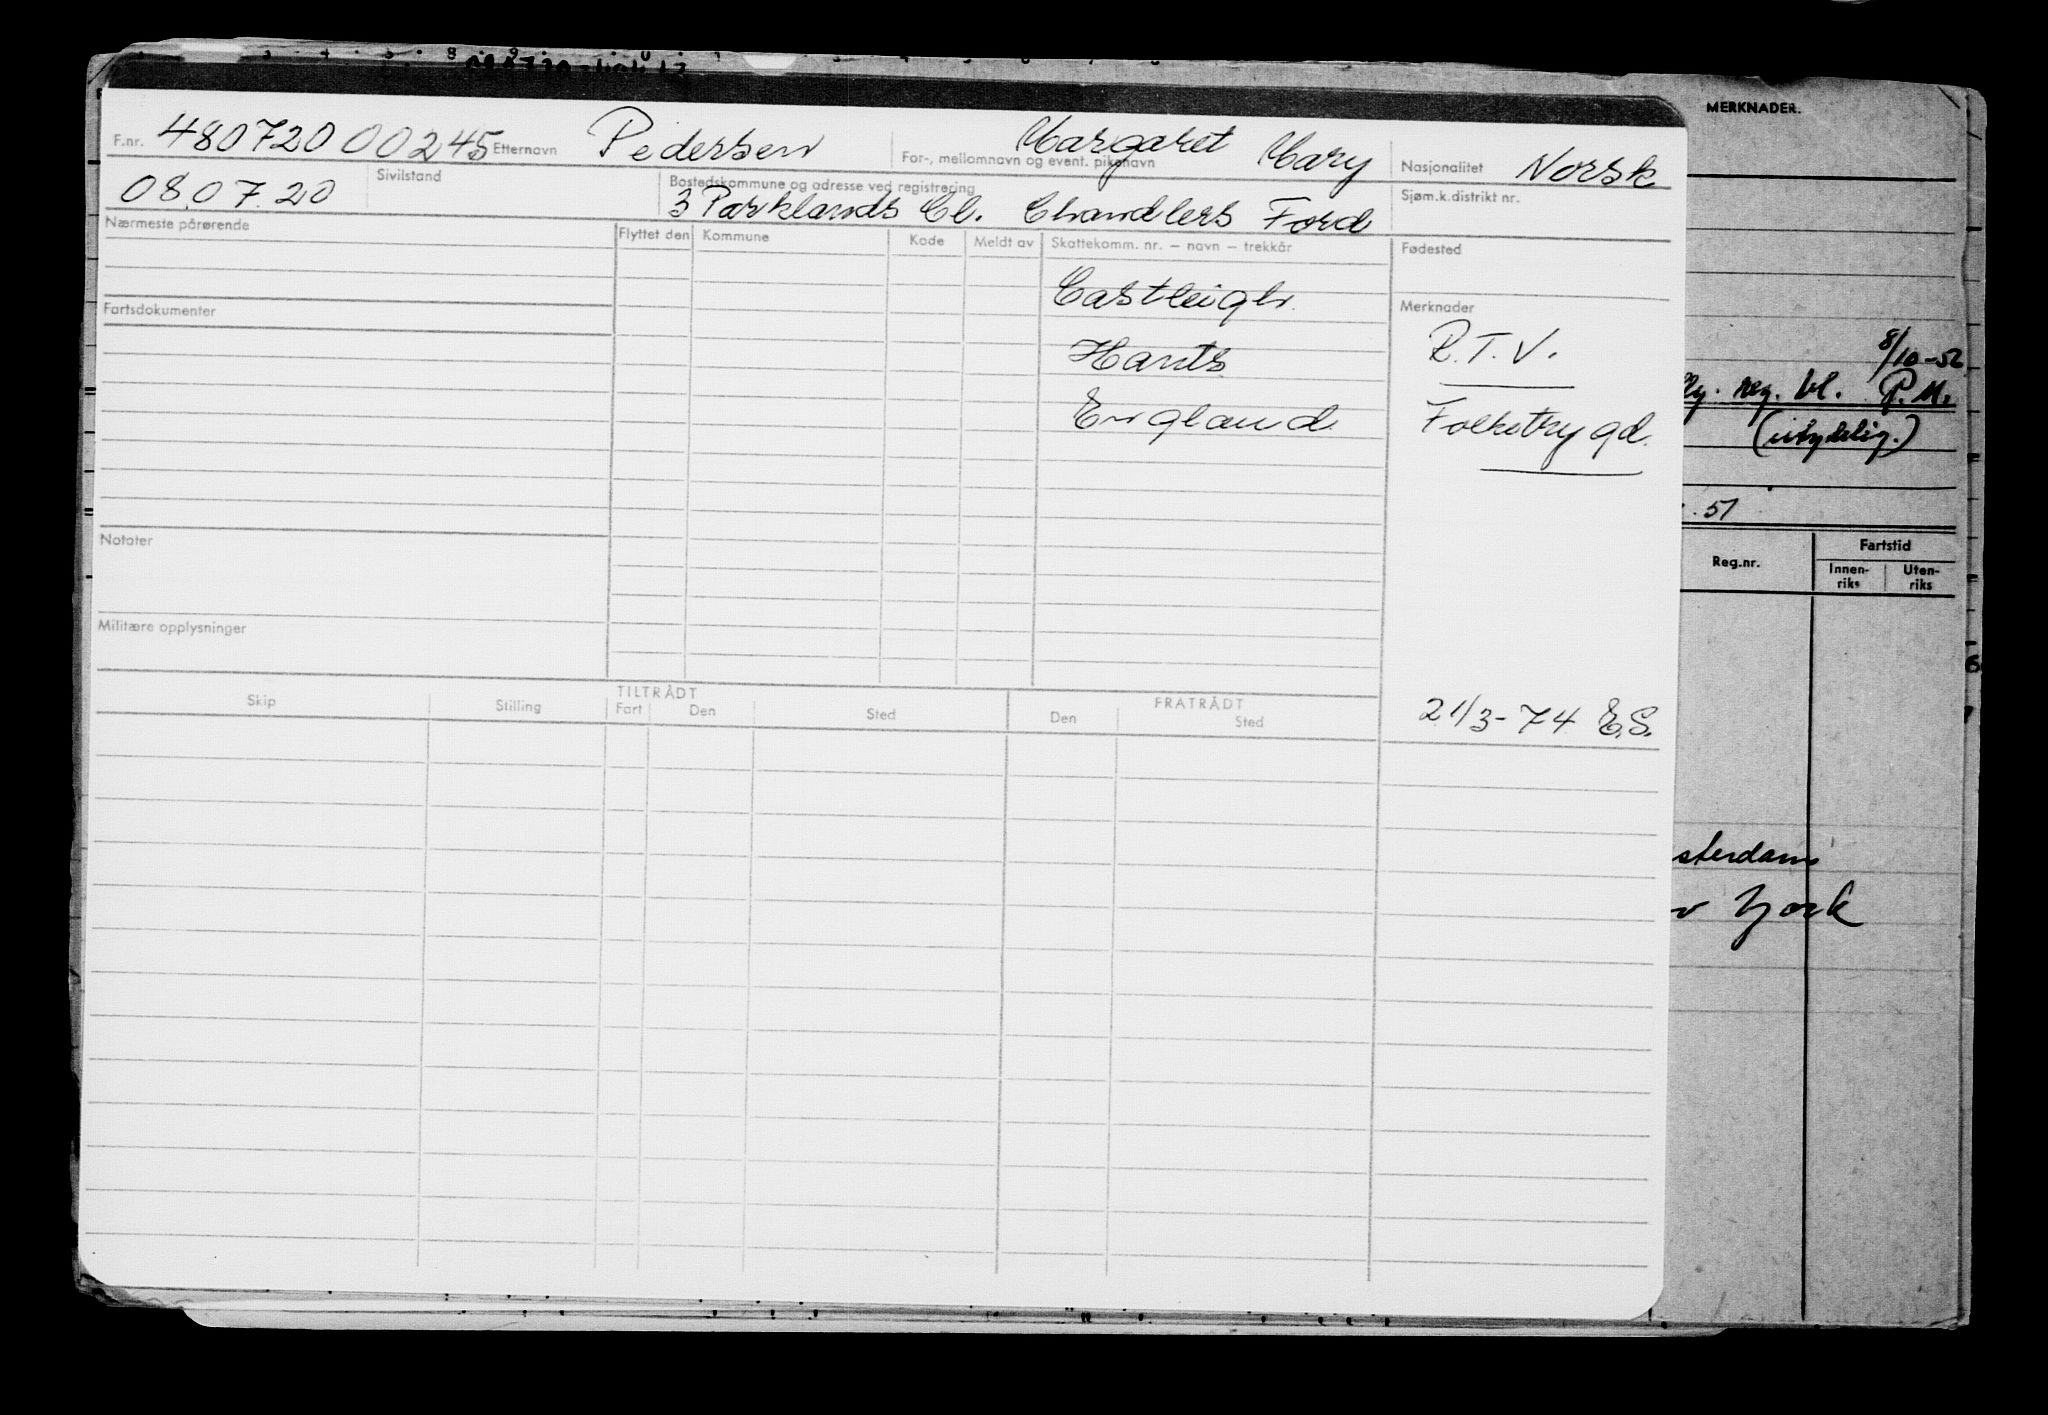 F.nr. 480720 00245 Etternavn Pedersen For-, mellomnavn og event. pikenavn Margaret Mary Nasjonalitet Norsk
08.07.20 Sivilstand Bostedskommune og adresse ved registrering 3 Parklands Cl. Chandlers Ford Sjøm.k.distrikt nr.
Nærmeste pårørende Flyttet den Kommune Kode Meldt av Skattekomm. nr. – navn – trekkår Fødested
Eastleigh.
Fartsdokumenter Merknader
Hants R.T.V.
England. Folketrygd.
Notater
Militære opplysninger
TILTRÅDT FRATRÅDT
Skip Stilling Fart Den Sted Den Sted
21/3-74 E.S.
MERKNADER.
8/10-52
reg. bl. P.M.
(utydelig.)
. 51
Reg.nr. Fartstid
Innen-riks Uten-riks
sterdam
York